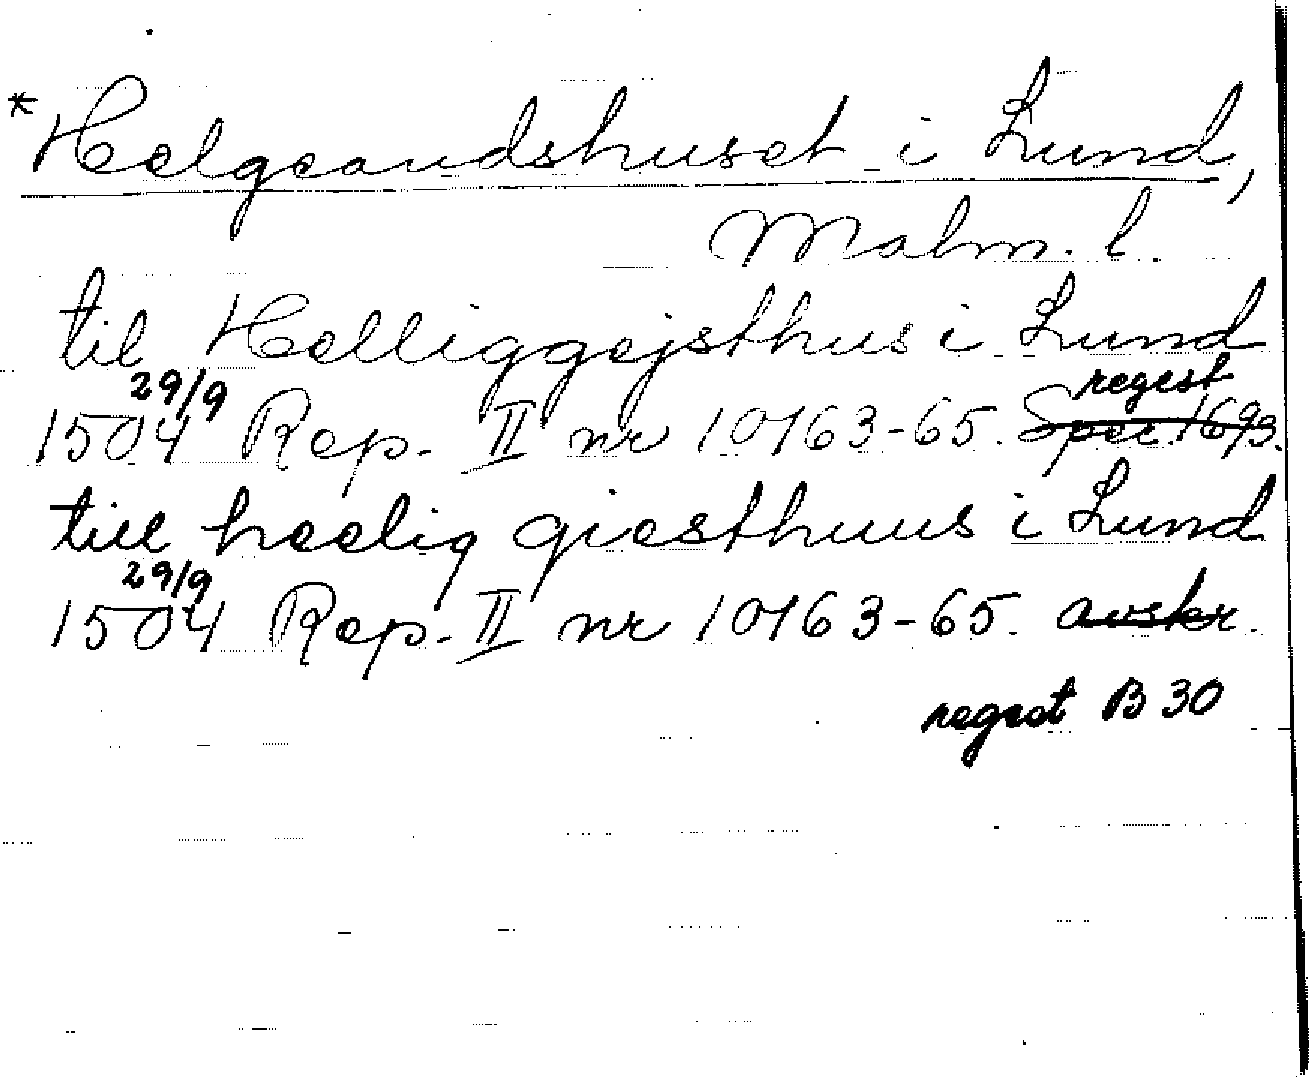 *Helgeandshuset i Lund,
Malm. l.
til Helliggejsthus i Lund
29/9 regest
1504 Rep. II nr 10163-65. Spec. 1693.
till heelig giesthuus i Lund
29/9
1504 Rep. II nr 10163-65. avskr.
regest B 30